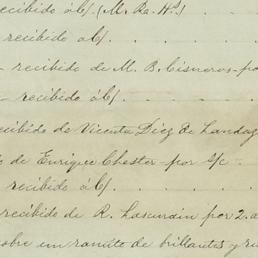 recibido ál c/ (M. Ra. Hs)
recibido ál c/.
- recibido de M. B. Cisneros - po
- recibido ál c/
ecibido de Vicenta Diez de Landaz
o de Enrique Chester - por S/c
recibido ál c/.
recibido de R. Lascurain por 2. a
obre un ramito de brillantes y ru